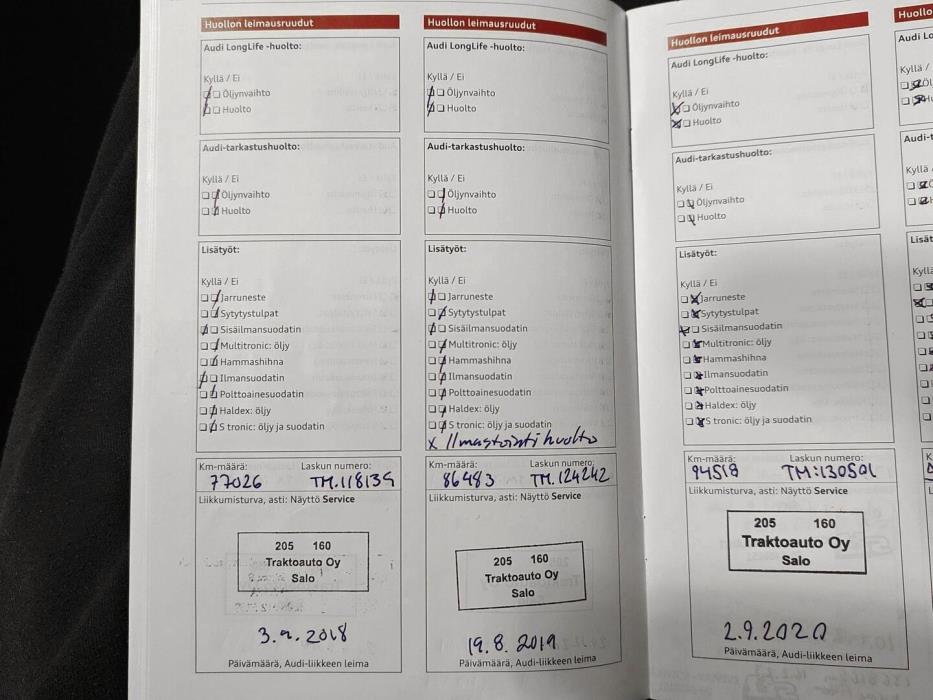 Huollon leimausruudut
Audi LongLife -huolto:
Kyllä / Ei
Öljynvaihto
Huolto
Audi-tarkastushuolto:
Kyllä / Ei
Öljynvaihto
Huolto
Lisätyöt:
Kyllä / Ei
Jarruneste
Sytytystulpat
Sisäilmansuodatin
Multitronic: öljy
Hammashihna
Ilmansuodatin
Polttoainesuodatin
Haldex: öljy
S tronic: öljy ja suodatin
Km-määrä: Laskun numero:
77026 TM.118139
Liikkumisturva, asti: Näyttö Service
205 160
Traktoauto Oy
Salo
2018
Päivämäärä, Audi-liikkeen leima
Huollon leimausruudut
Audi LongLife -huolto:
Kyllä / Ei
Öljynvaihto
Huolto
Audi-tarkastushuolto:
Kyllä / Ei
Öljynvaihto
Huolto
Lisätyöt:
Kyllä / Ei
Jarruneste
Sytytystulpat
Sisäilmansuodatin
Multitronic: öljy
Hammashihna
Ilmansuodatin
Polttoainesuodatin
Haldex: öljy
S tronic: öljy ja suodatin
x Ilmastointi huolto
Km-määrä: Laskun numero:
86483 TM.124242
Liikkumisturva, asti: Näyttö Service
205 160
Traktoauto Oy
Salo
19.8.2019
Päivämäärä, Audi-liikkeen leima
Huollon leimausruudut
Audi LongLife -huolto:
Kyllä / Ei
Öljynvaihto
Huolto
Audi-tarkastushuolto:
Kyllä / Ei
Öljynvaihto
Huolto
Lisätyöt:
Kyllä / Ei
Jarruneste
Sytytystulpat
Sisäilmansuodatin
Multitronic: öljy
Hammashihna
Ilmansuodatin
Polttoainesuodatin
Haldex: öljy
S tronic: öljy ja suodatin
Km-määrä: Laskun numero:
94518 TM:130501
Liikkumisturva, asti: Näyttö Service
205 160
Traktoauto Oy
Salo
2.9.2020
Päivämäärä, Audi-liikkeen leima